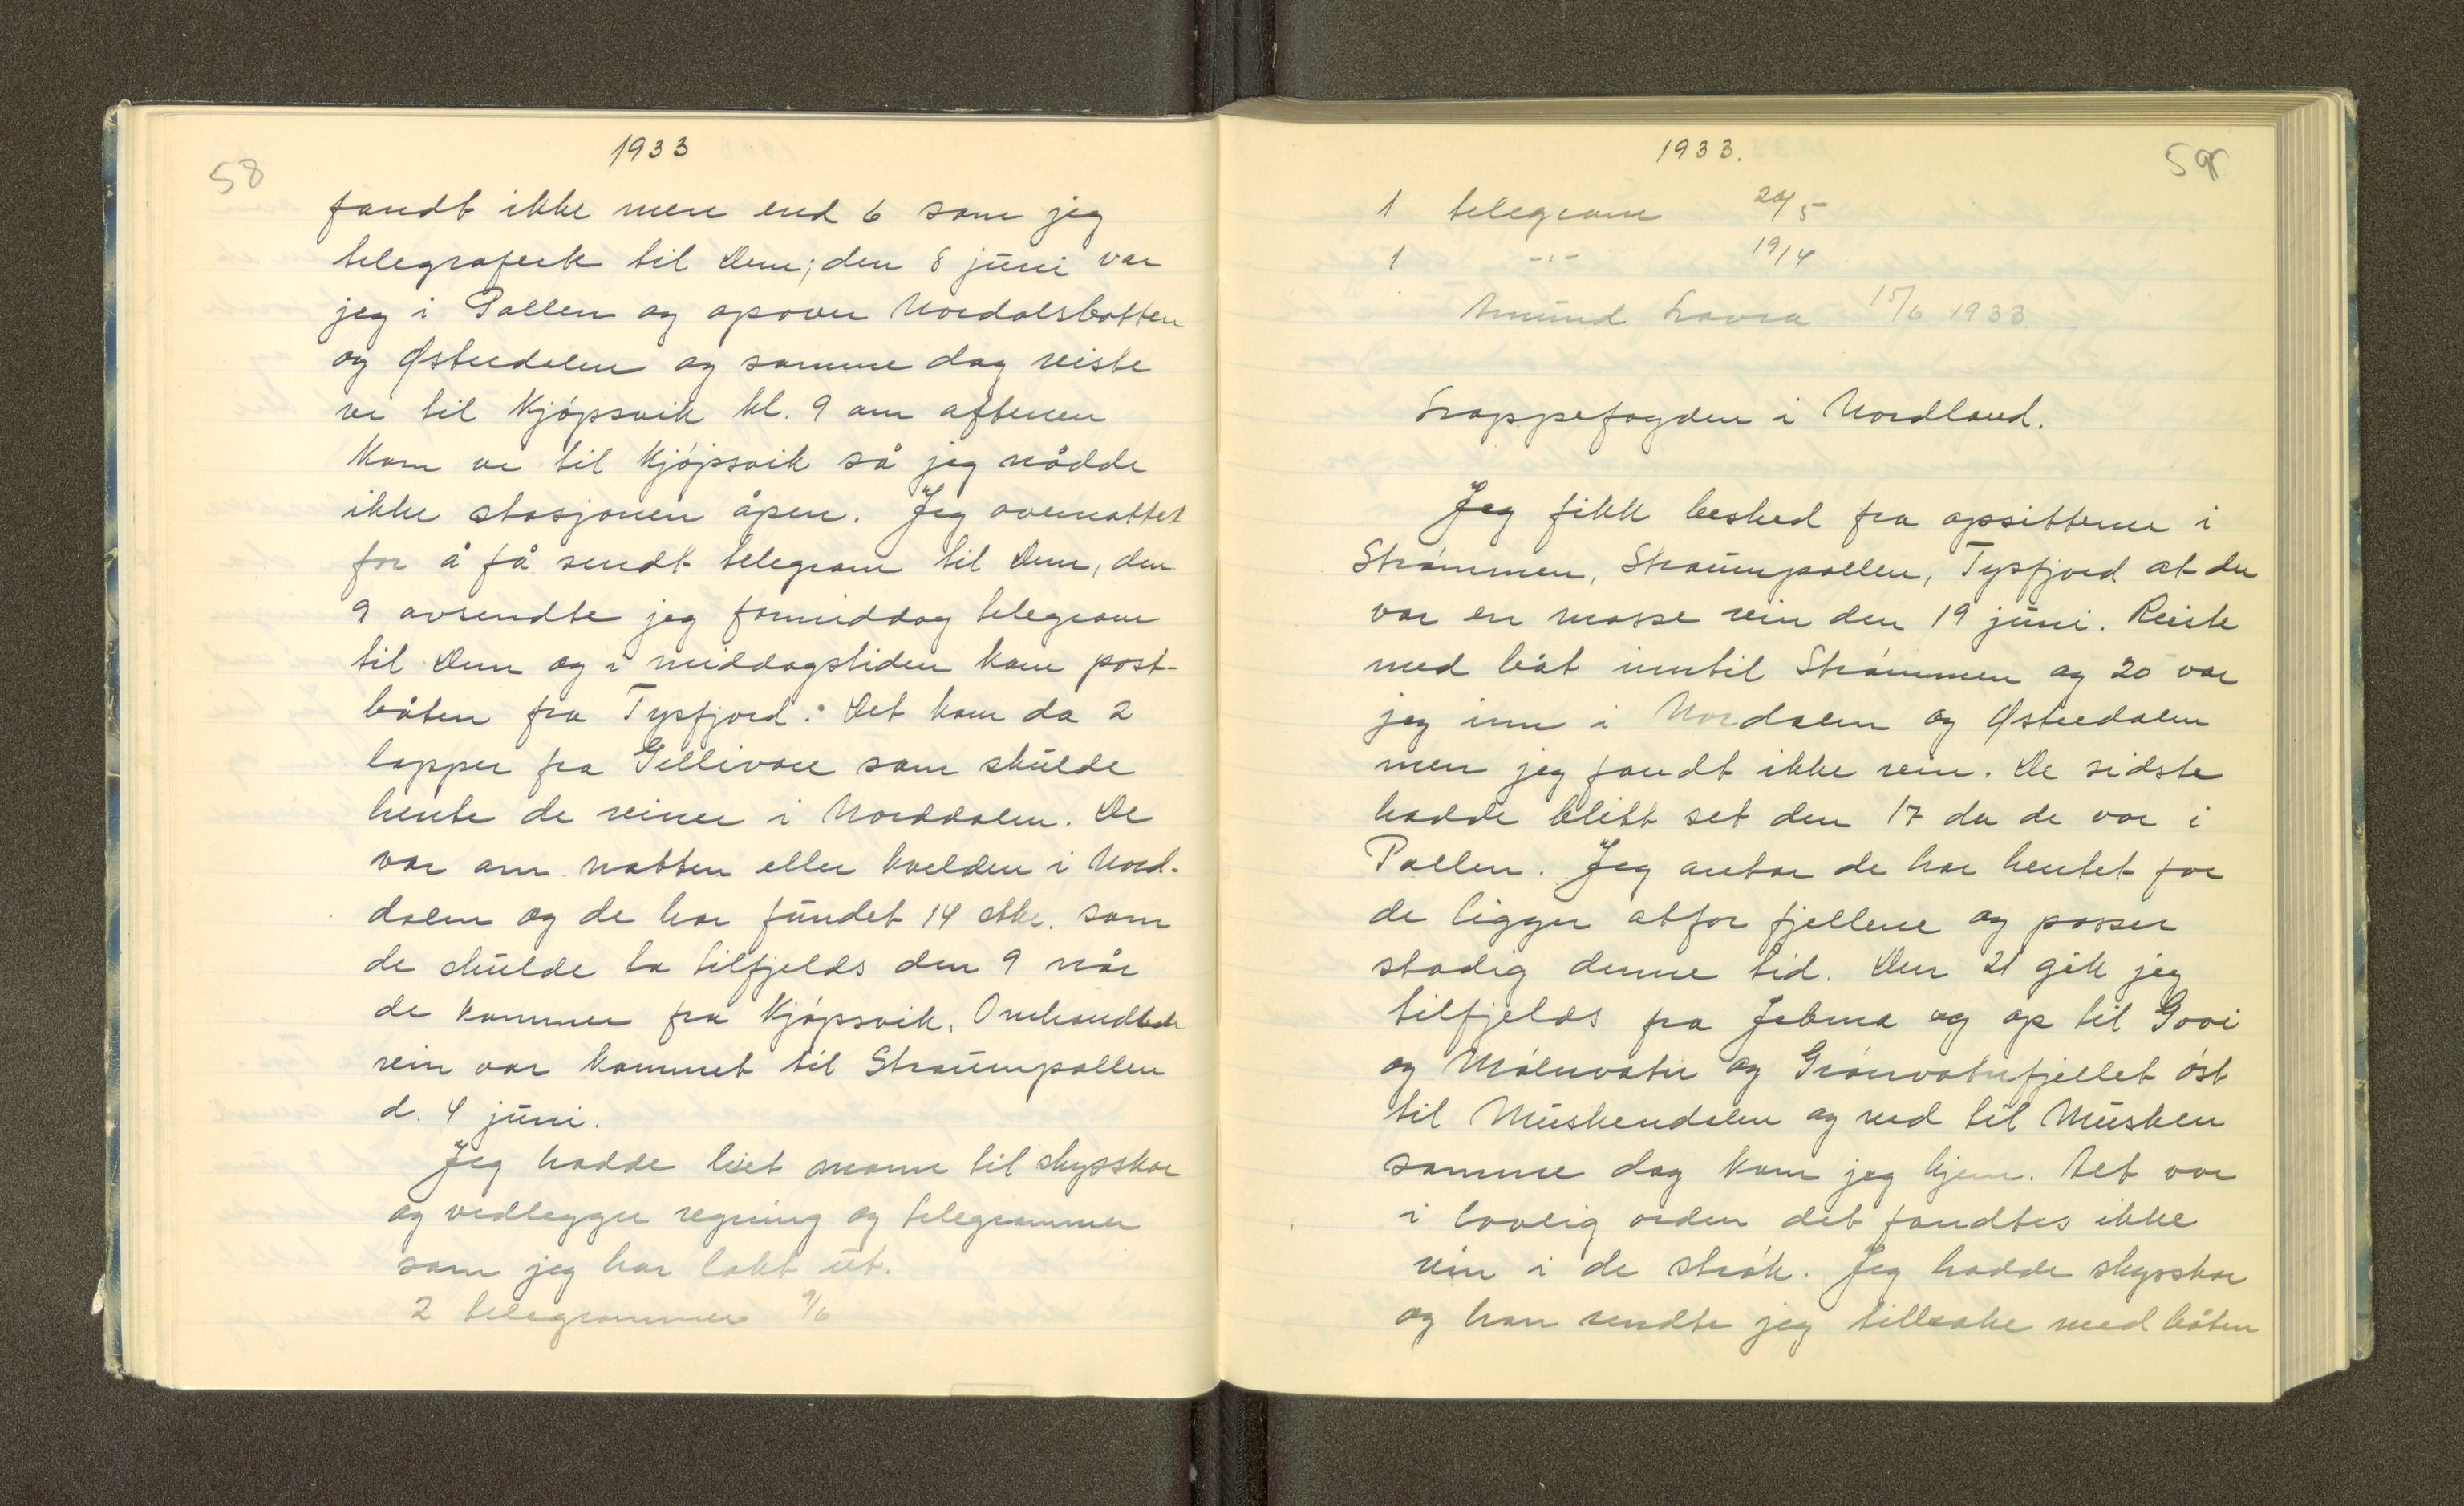 58
1933
fandt ikke mere end 6 som jeg
telegraferte til Dem; den 8 juni var
jeg i Pollen og opover Nordalsbotten
og Østerdalen og samme dag reiste
vi til Kjøpsvik kl. 9 om aftenen
kom vi til Kjøpsvik så jeg nådde
ikke stasjonen åpen. Jeg overnattet
for å få sendt telegram til Dem, den
9 avsendte jeg formiddag telegram
til Dem og i middagstiden kom post-
båten fra Tysfjord. Det kom da 2
lapper fra Gellivare som skulde
hente de reiner i Norddalen. De
var om natten eller kvelden i Nord-
dalen og de har fundet 14 stkr. som
de skulde ta tilfjelds den 9 når
de kommer fra Kjøpsvik. Omhandlede
rein var kommet til Straumpollen
d. 4 juni.
Jeg hadde leiet mann til skysskar
og vedlegger regning og telegrammer
som jeg har lakt ut.
2 telegrammer 9/6
1933.
59
1 telegram 20/5
1 -"- 19/4
Amund Lavra 15/6 1933
Lappefogden i Nordland.
Jeg fikk besked fra opsitterne i
Strømmen, Straumpollen, Tysfjord at der
var en masse rein den 19 juni. Reiste
med båt inntil Strømmen og 20 var
jeg inn i Nordalen og Østerdalen
men jeg fandt ikke rein. De sidste
hadde blitt set den 17 da de var i
Pollen. Jeg antar de har hentet for
de ligger atfor fjellene og passer
stadig denne tid. Den 21 gik jeg
tilfjelds fra Jebma og op til Govi
og Mølnvatn og Grønvatnfjellet øst
til Muskendalen og ned til Musken
samme dag kom jeg hjem. Det var
i lovlig orden det fandtes ikke
rein i de strøk. Jeg hadde skysskar
og han sendte jeg tilbake med båten